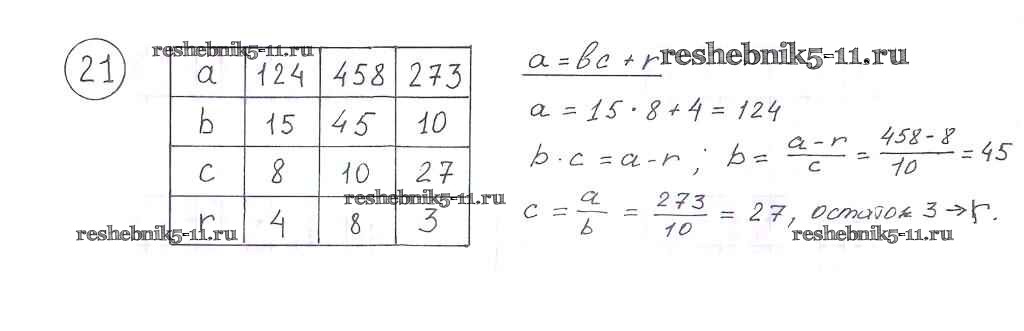 21
reshebnik5-11.ru
a 124 458 273
b 15 45 10
c 8 10 27
reshebnik5-11.ru
r 4 8 3
reshebnik5-11.ru
a = bc + r
reshebnik5-11.ru
a = 15 · 8 + 4 = 124
b · c = a - r ; b = (a - r)/c = (458 - 8)/10 = 45
c = a/b = 273/10 = 27, остаток 3 → r.
reshebnik5-11.ru